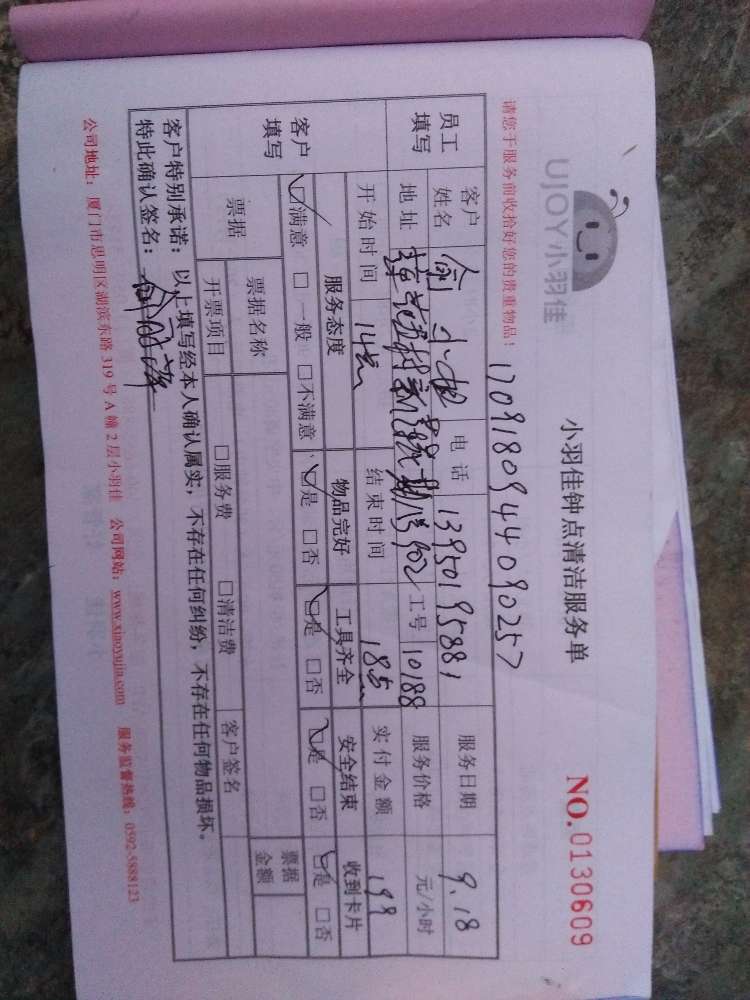 UJOY小羽佳
小羽佳钟点清洁服务单
NO.0130609
请您于服务前收拾好您的贵重物品!
1709180944090257
员工填写
客户姓名
电话 13950195881
服务日期 9.18
地址
工号 10188
服务价格 元/小时
开始时间 14点
结束时间 18点
实付金额 199
客户填写
服务态度 物品完好 工具齐全 安全结束 收到卡片
☑满意 □一般 □不满意 ☑是 □否 ☑是 □否 ☑是 □否 ☑是 □否
票据 票据名称 票据金额
开票项目 □服务费 □清洁费 客户签名
客户特别承诺:以上填写经本人确认属实,不存在任何纠纷,不存在任何物品损坏。
特此确认签名:
公司地址:厦门市思明区湖滨东路 319 号 A 幢 2 层小羽佳 公司网站:www.xiaoyujia.com 服务监督热线:0592-5888123